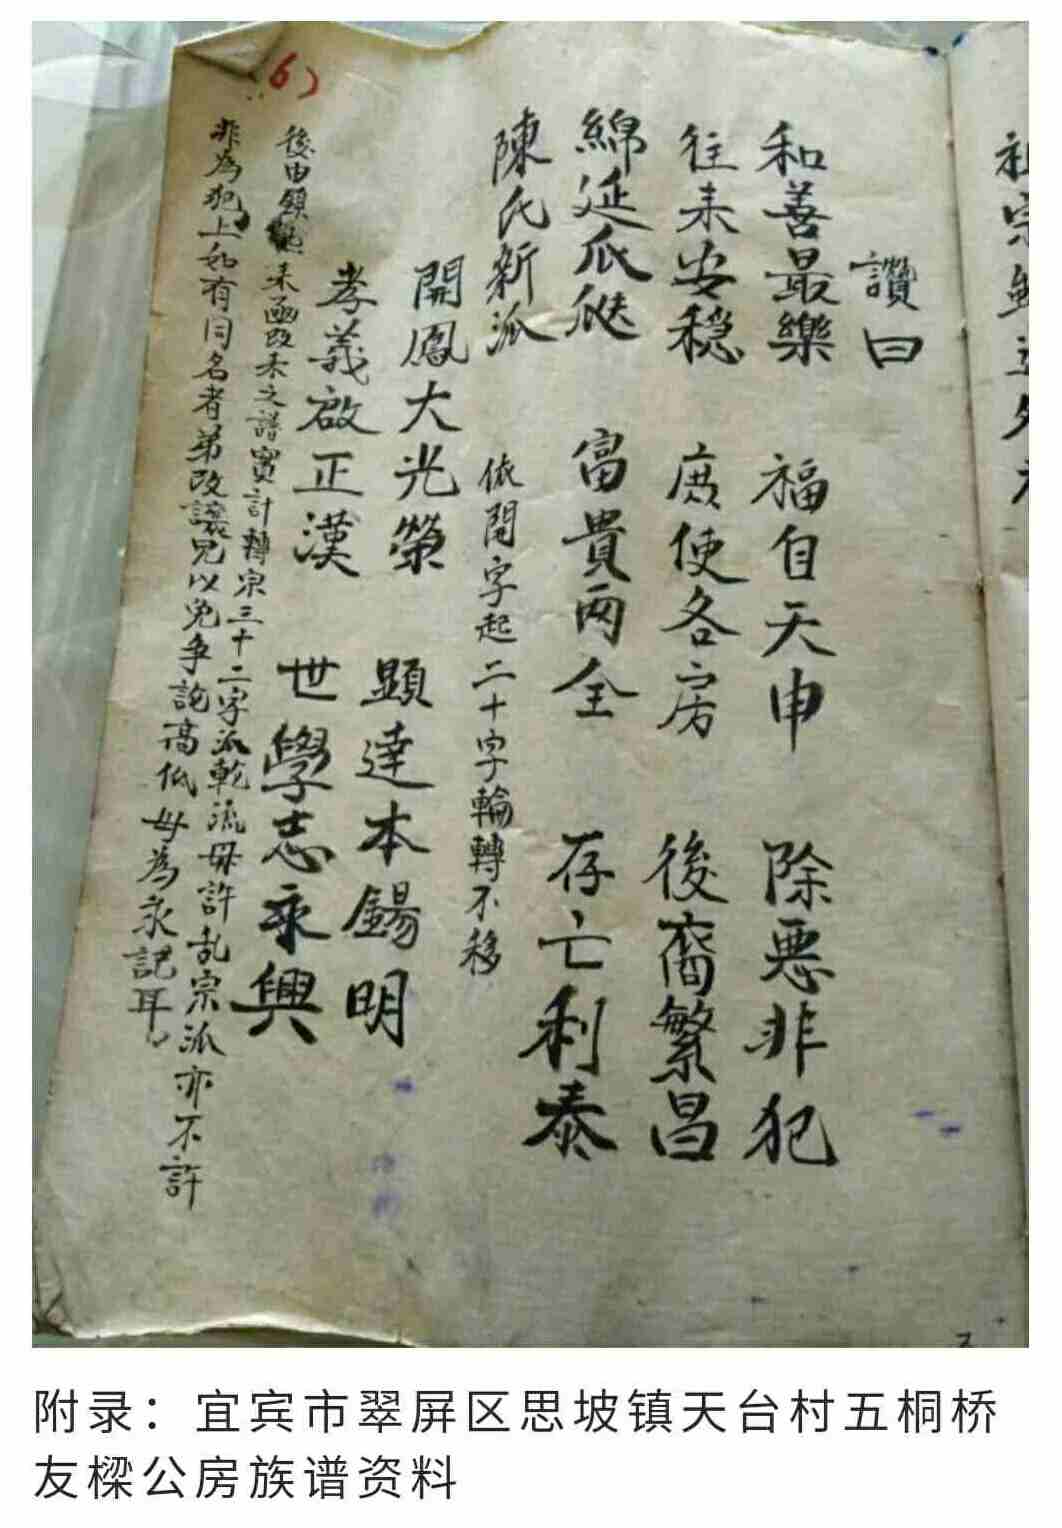 6)
讚曰
和善最樂 福自天申 除惡非犯
往来安稳 庶使各房 後裔繁昌
綿延瓜瓞 富貴兩全 存亡利泰
陳氏新派 依開字起二十字輪轉不移
開鳳大光榮 顯達本錫明
孝義啟正漢 世學志永興
後由鎮 来函改未之譜實計轉宗三十二字派乾流毋許乱宗派亦不許
非為犯上如有同名者弟改讓兄以免争論高低毋為永記耳
祖宗
附录：宜宾市翠屏区思坡镇天台村五桐桥
友樑公房族谱资料